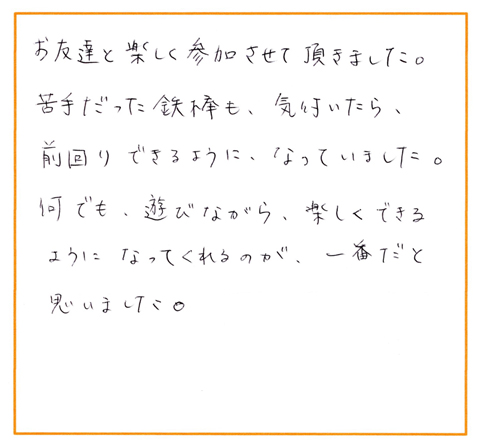 お友達と楽しく参加させて頂きました。
苦手だった鉄棒も、気付いたら、
前回りできるように、なっていました。
何でも、遊びながら、楽しくできる
ようになってくれるのが、一番だと
思いました。